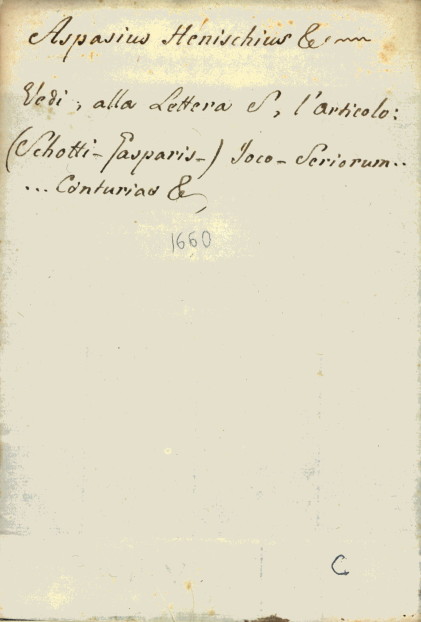 Aspasius Henischius &
Vedi, alla Lettera S, l'articolo:
(Schotti - Gasparis -) Joco - Seriorum..
... Centurias &
1660
C